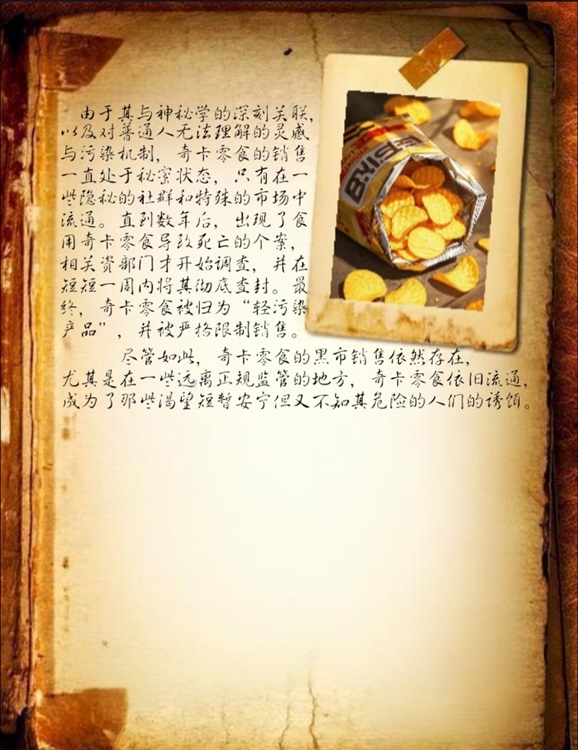 由于其与神秘学的深刻关联,
以及对普通人无法理解的灵感
与污染机制, 奇卡零食的销售
一直处于秘密状态, 只有在一
些隐秘的社群和特殊的市场中
流通。直到数年后, 出现了食
用奇卡零食导致死亡的个案,
相关资部门才开始调查, 并在
短短一周内将其彻底查封。最
终, 奇卡零食被归为“轻污染
产品”, 并被严格限制销售。
尽管如此, 奇卡零食的黑市销售依然存在,
尤其是在一些远离正规监管的地方, 奇卡零食依旧流通,
成为了那些渴望短暂安宁但又不知其危险的人们的诱饵。